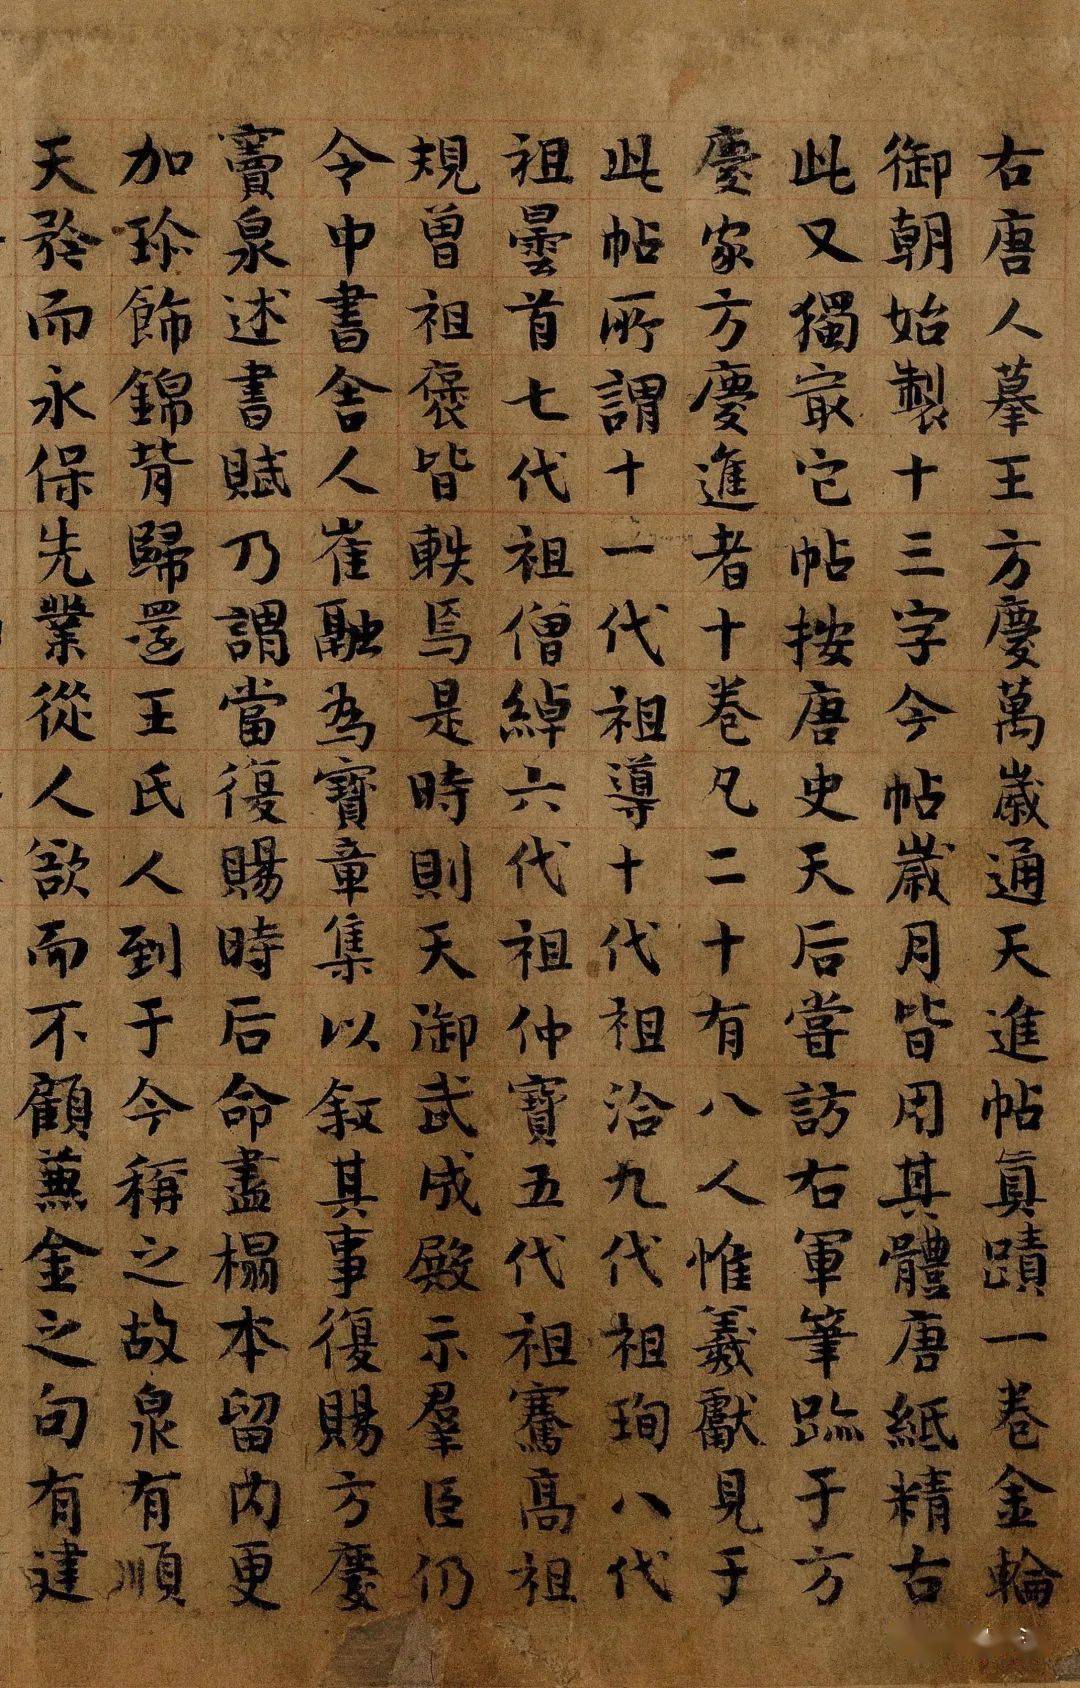 右唐人摹王方慶萬歲通天進帖真蹟一卷金輪
御朝始製十三字今帖歲月皆用其體唐紙精古
此又獨㝡它帖按唐史天后嘗訪右軍筆跡于方
慶家方慶進者十卷凡二十有八人惟羲獻見于
此帖所謂十一代祖導十代祖洽九代祖珣八代
祖曇首七代祖僧綽六代祖仲寶五代祖騫高祖
規曾祖褒皆軼焉是時則天御武成殿示羣臣仍
令中書舍人崔融為寶章集以敘其事復賜方慶
竇泉述書賦乃謂當復賜時后命盡榻本留内更
加珍飾錦背歸還王氏人到于今稱之故泉有順
天矜而永保先業從人欲而不顧蒹金之句有建